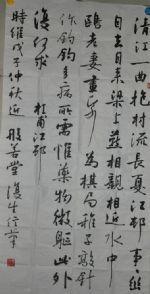 清江一曲抱村流長夏江邨事事幽
自去自來梁上燕相親相近水中
鷗老妻畫紙為棋局稚子敲針
作釣鈎多病所需惟藥物微軀此外
復何求 杜甫江邨
時維戊子仲秋近
般善堂